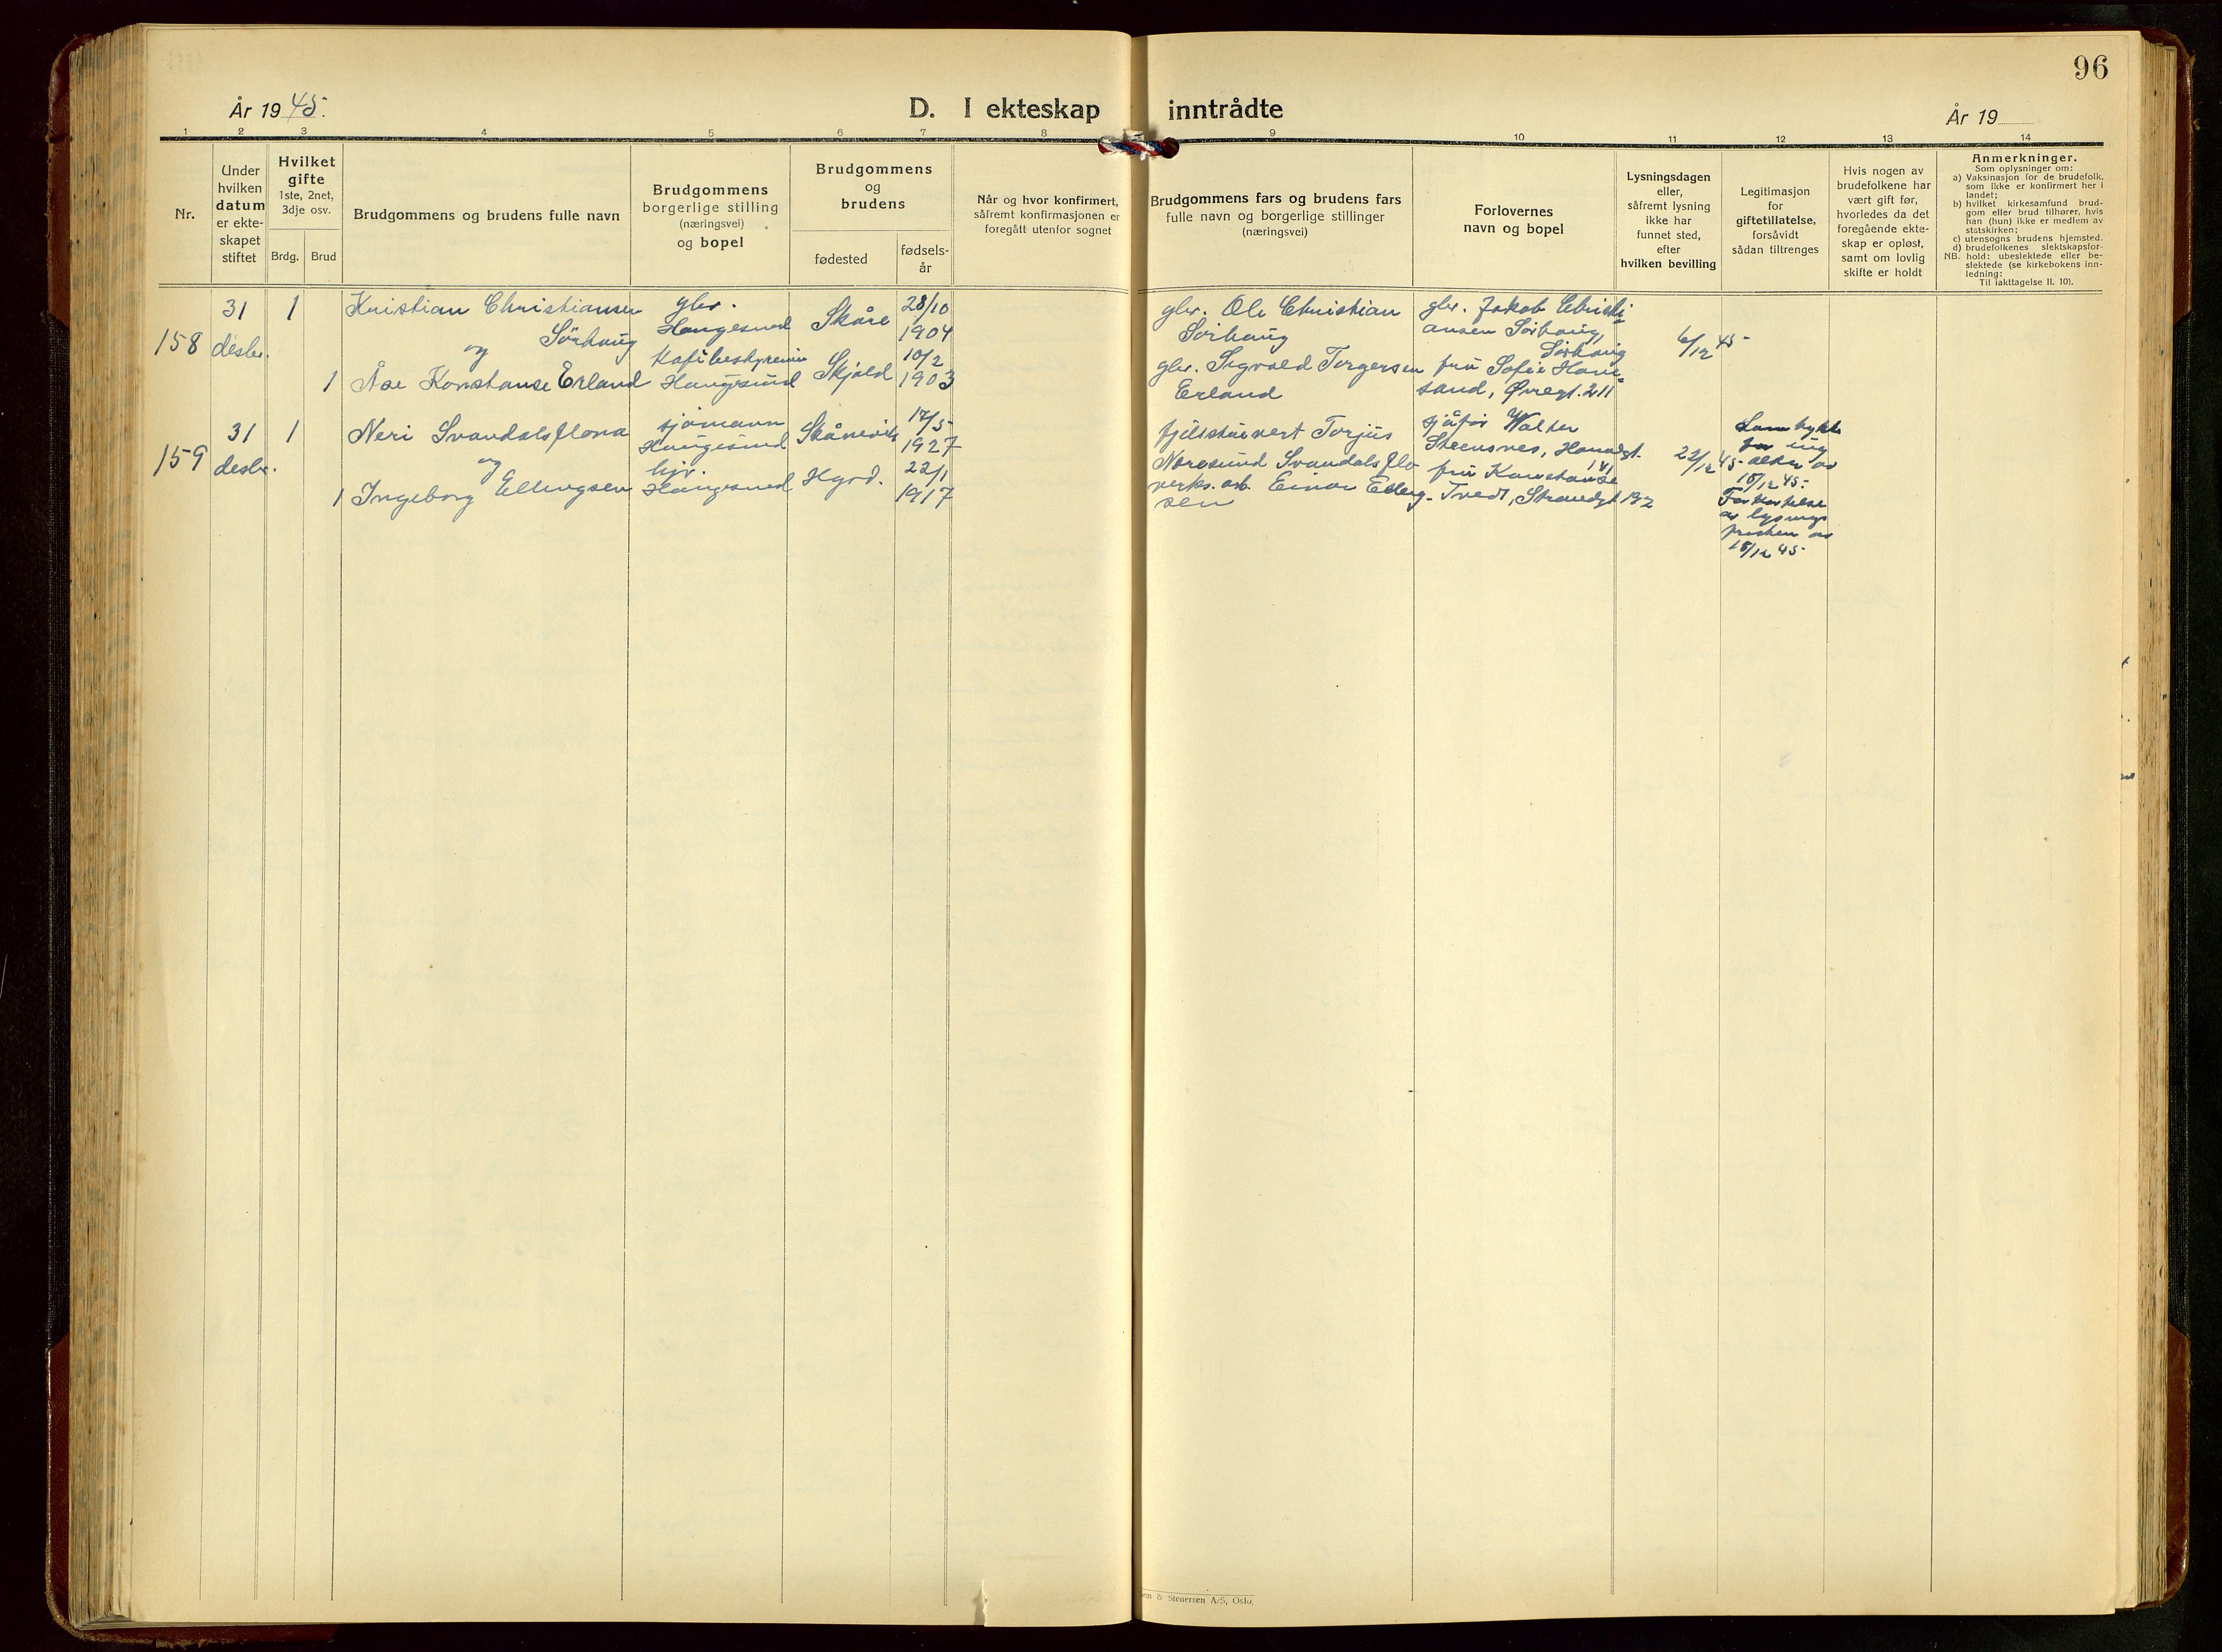 96
År 1945.
D. I ekteskap inntrådte
År 19
1 2 3 4 5 6 7 8 9 10 11 12 13 14
Nr.
Under
hvilken
datum
er ekte-
skapet
stiftet
Hvilket
gifte
1ste, 2net,
3dje osv.
Brdg.
Brud
Brudgommens og brudens fulle navn
Brudgommens
borgerlige stilling
(næringsvei)
og bopel
Brudgommens
og
brudens
fødested
fødsels-
år
Når og hvor konfirmert,
såfremt konfirmasjonen er
foregått utenfor sognet
Brudgommens fars og brudens fars
fulle navn og borgerlige stillinger
(næringsvei)
Forlovernes
navn og bopel
Lysningsdagen
eller,
såfremt lysning
ikke har
funnet sted,
efter
hvilken bevilling
Legitimasjon
for
giftetillatelse,
forsåvidt
sådan tiltrenges
Hvis nogen av
brudefolkene har
vært gift før,
hvorledes da det
foregående ekte-
skap er opløst,
samt om lovlig
skifte er holdt
Anmerkninger.
Som oplysninger om:
a) Vaksinasjon for de brudefolk,
som ikke er konfirmert her i
landet;
b) hvilket kirkesamfund brud-
gom eller brud tilhører, hvis
han (hun) ikke er medlem av
statskirken;
c) utensogns brudens hjemsted.
d) brudefolkenes slektskapsfor-
NB. hold: ubeslektede eller be-
slektede (se kirkebokens inn-
ledning:
Til iakttagelse II. 10).
158
31
desbr.
1
Kristian Christiansen
Sörhaug
og
1 Åse Konstanse Erland
gbr.
Haugesund
Kafébestyrerin
Haugesund
Skåre
Skjold
28/10
1904
10/2
1903
gbr. Ole Christian
Sörhaug
gbr. Sigvald Torgersen
Erland
gbr. Jakob Christi=
ansen Sörhaug,
Sörhaug
fru Sofie Haui=
sand, Øvregt. 211
6/12 45-
159
31
desbr.
1
Neri Svandalsflona
og
1 Ingeborg Ellingsen
sjömann
Haugesund
hjv.
Haugesund
Skånevik
Hgsd.
17/5-
1927
22/1
1917
Torjus
Noresund Svandalsflo
verks. arb. Einar Elling-
sen
sjåför Walter
Steensnes, Haraldgt.
141
fru Konstanse
Tvedt, Strandgt 192
22/12 45-
Samtykke
for ung
alder av
18/12 45-
Forkortelse
av lysnings
fristen av
18/12 45-
& Steuersen A/S, Oslo.